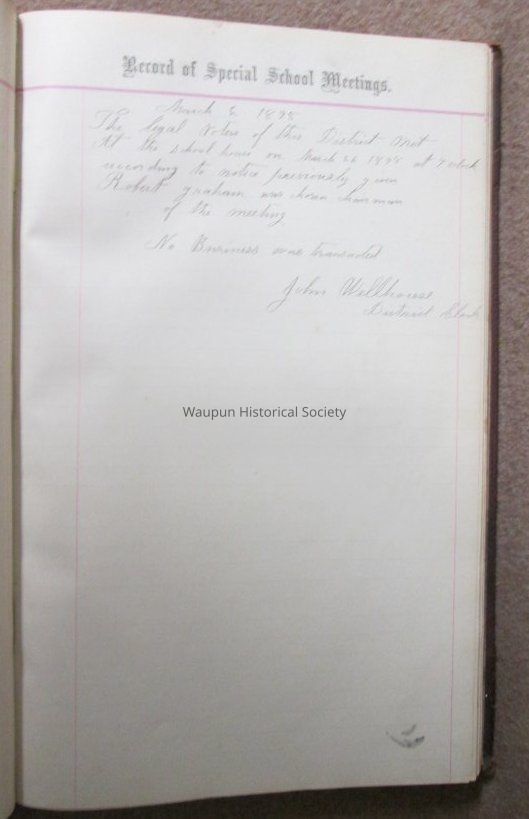 Record of Special School Meetings.
March 1898
The legal Voters of this District met
At the school house on March 26 1898 at 7 oclock
according to notice previously given
Robert graham was chosen chairman
of the meeting
No Business was transacted
John Wellhouse
District Clerk
Waupun Historical Society